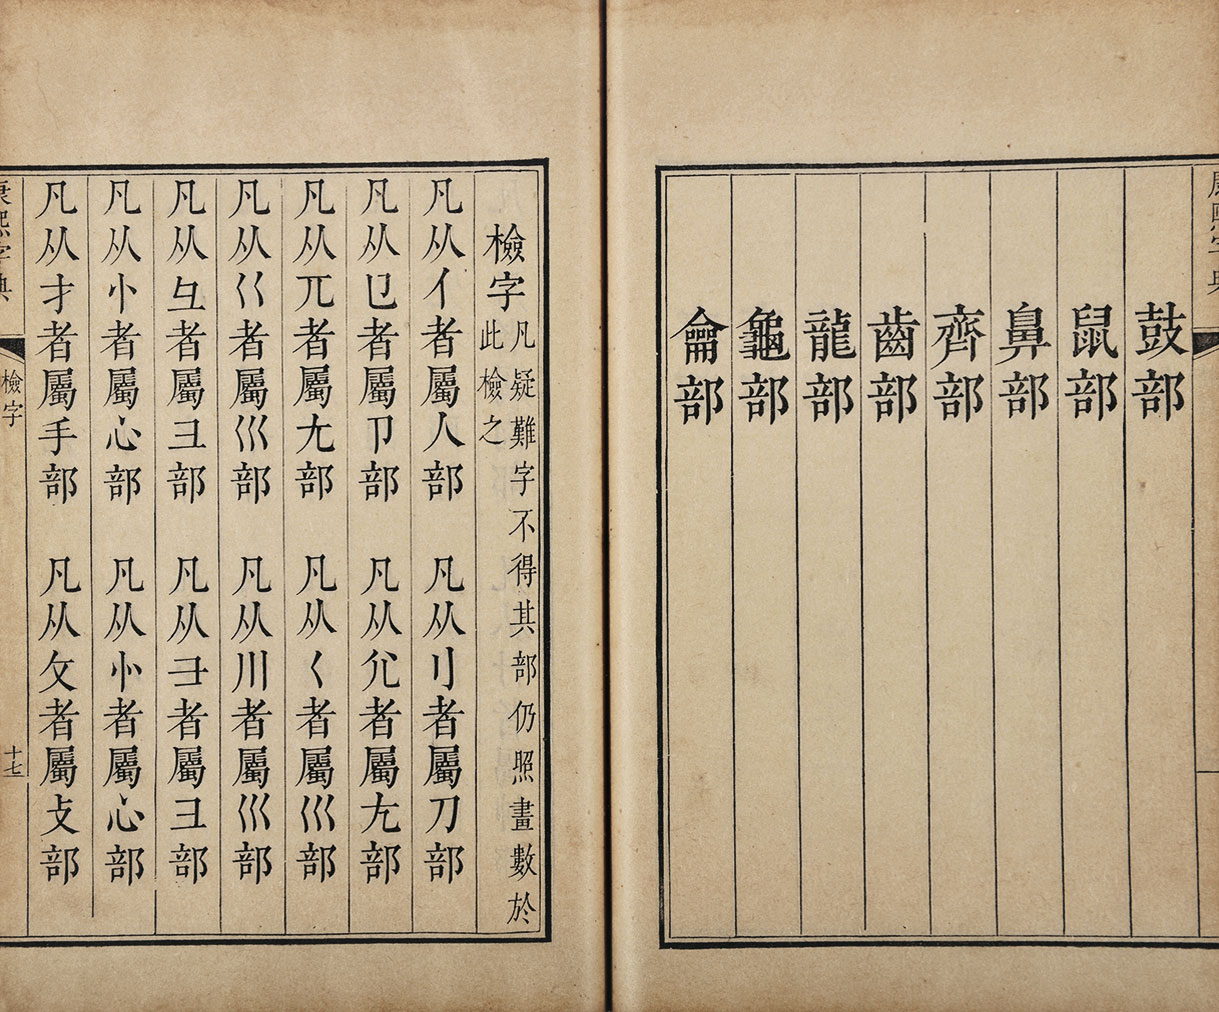 康熙字典
鼓部
鼠部
鼻部
齊部
齒部
龍部
龜部
龠部
檢字 凡疑難字不得其部仍照畫數於
此檢之
凡从亻者屬人部 凡从刂者屬刀部
凡从㔾者屬卩部 凡从尣者屬尢部
凡从兀者屬尢部 凡从𡿨者屬巛部
凡从巜者屬巛部 凡从川者屬巛部
凡从彑者屬彐部 凡从⺕者屬彐部
凡从忄者屬心部 凡从㣺者屬心部
凡从扌者屬手部 凡从攵者屬攴部
康熙字典 檢字 十七